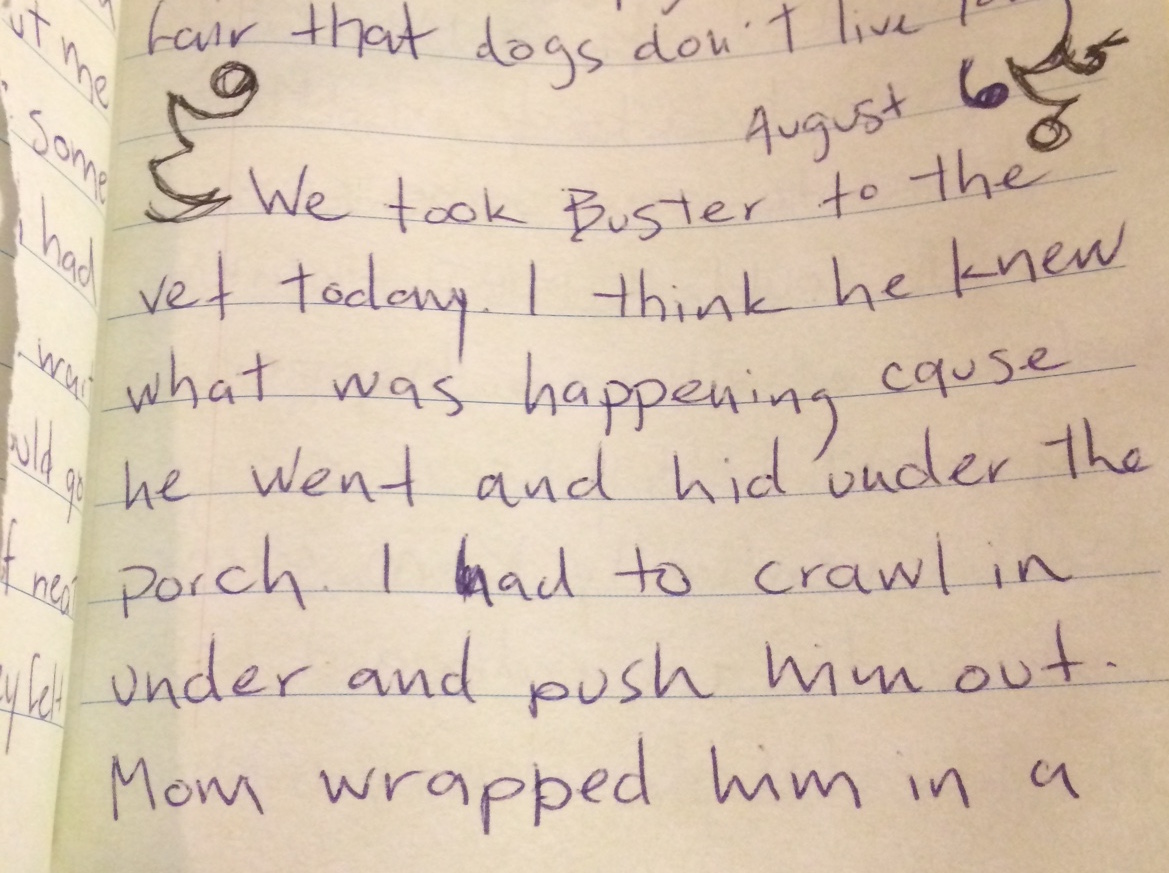 ut me
Some
had
ould go
f nea
ey felt
fair that dogs don't live
August 6
We took Buster to the
vet today. I think he knew
what was happening cause
he went and hid under the
porch. I had to crawl in
under and push him out.
Mom wrapped him in a